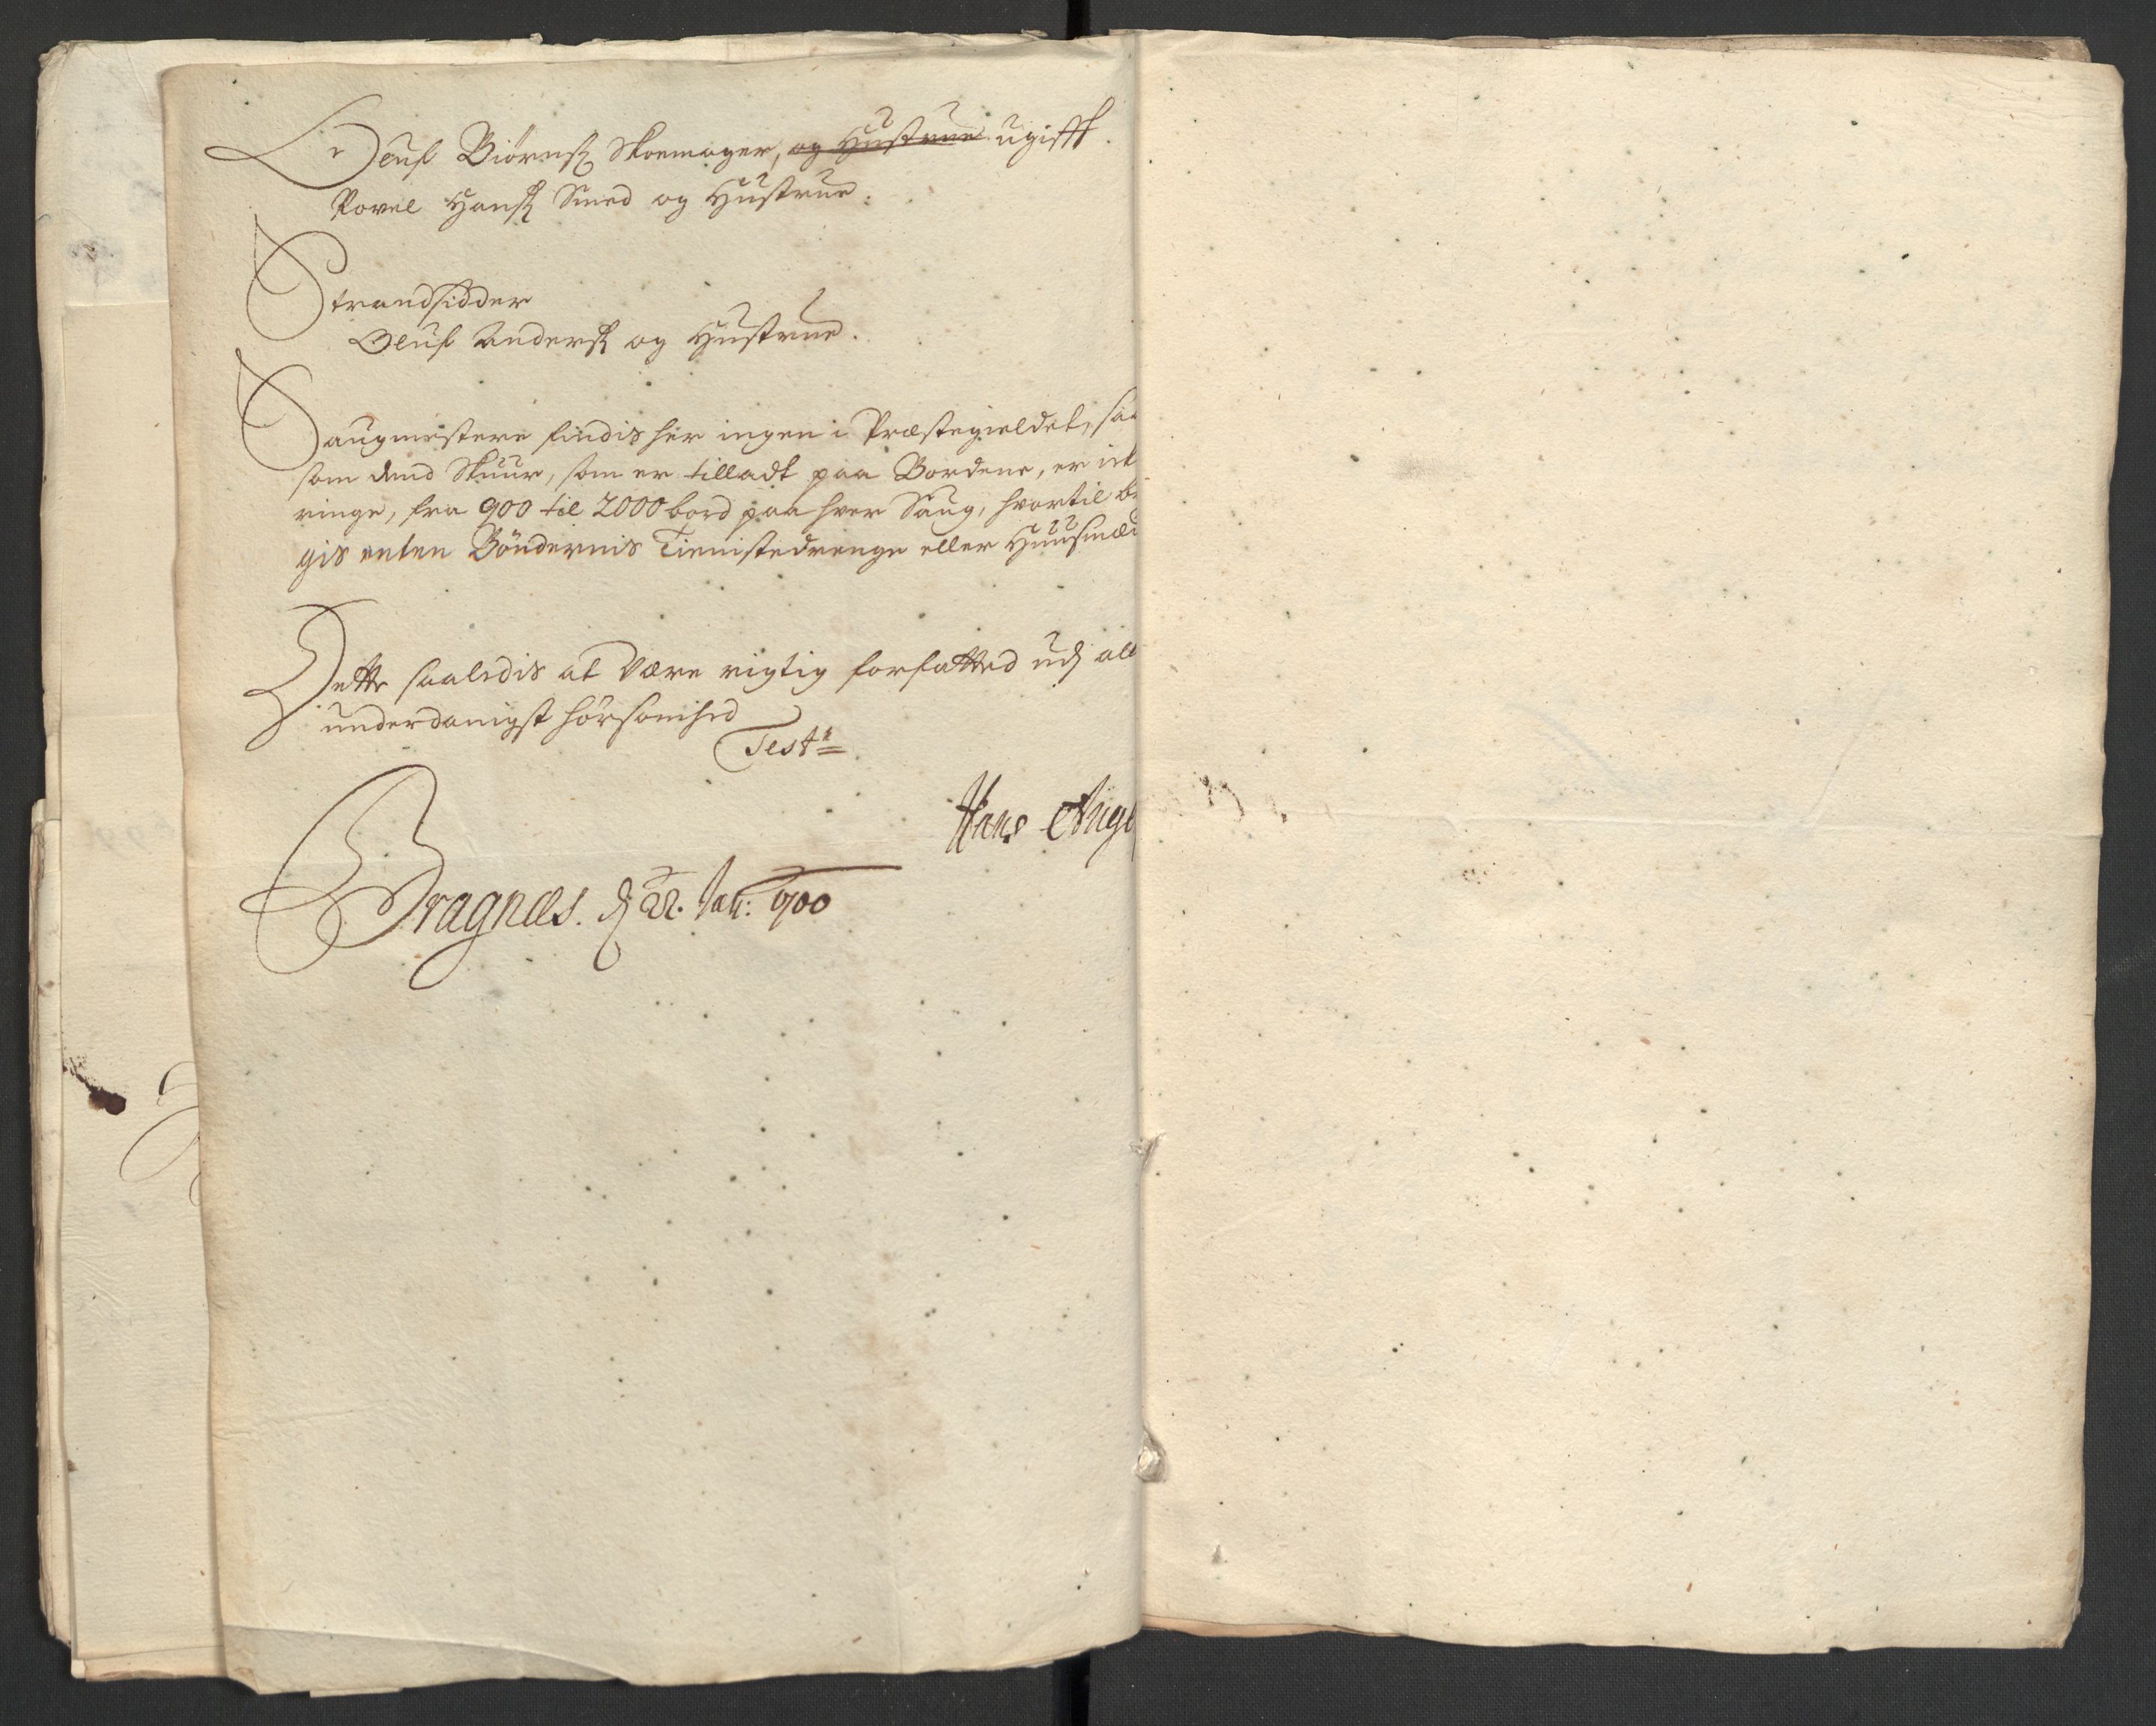 Oluf Biørns: Skoemager, og Hustrue ugifft.
Povel Hans: Smed og Hustrue.
Strandsidder
Oluf Anders: og Hustrue.
Saugmestere findis her ingen i Præstegieldet, saa
som dend Skuur, som er tilladt paa Bordene, er ick
ringe, fra 900 til 2000 bord paa hver Saug, hvortil br
gis enten Bøndernis Tienistedrenge eller Huusmæn
Dette saaledis at være rigtig forfatted udj all
underdanigst hørsomhed
Test:
Hans Ang
Bragnæs. d 22. Jan: 700